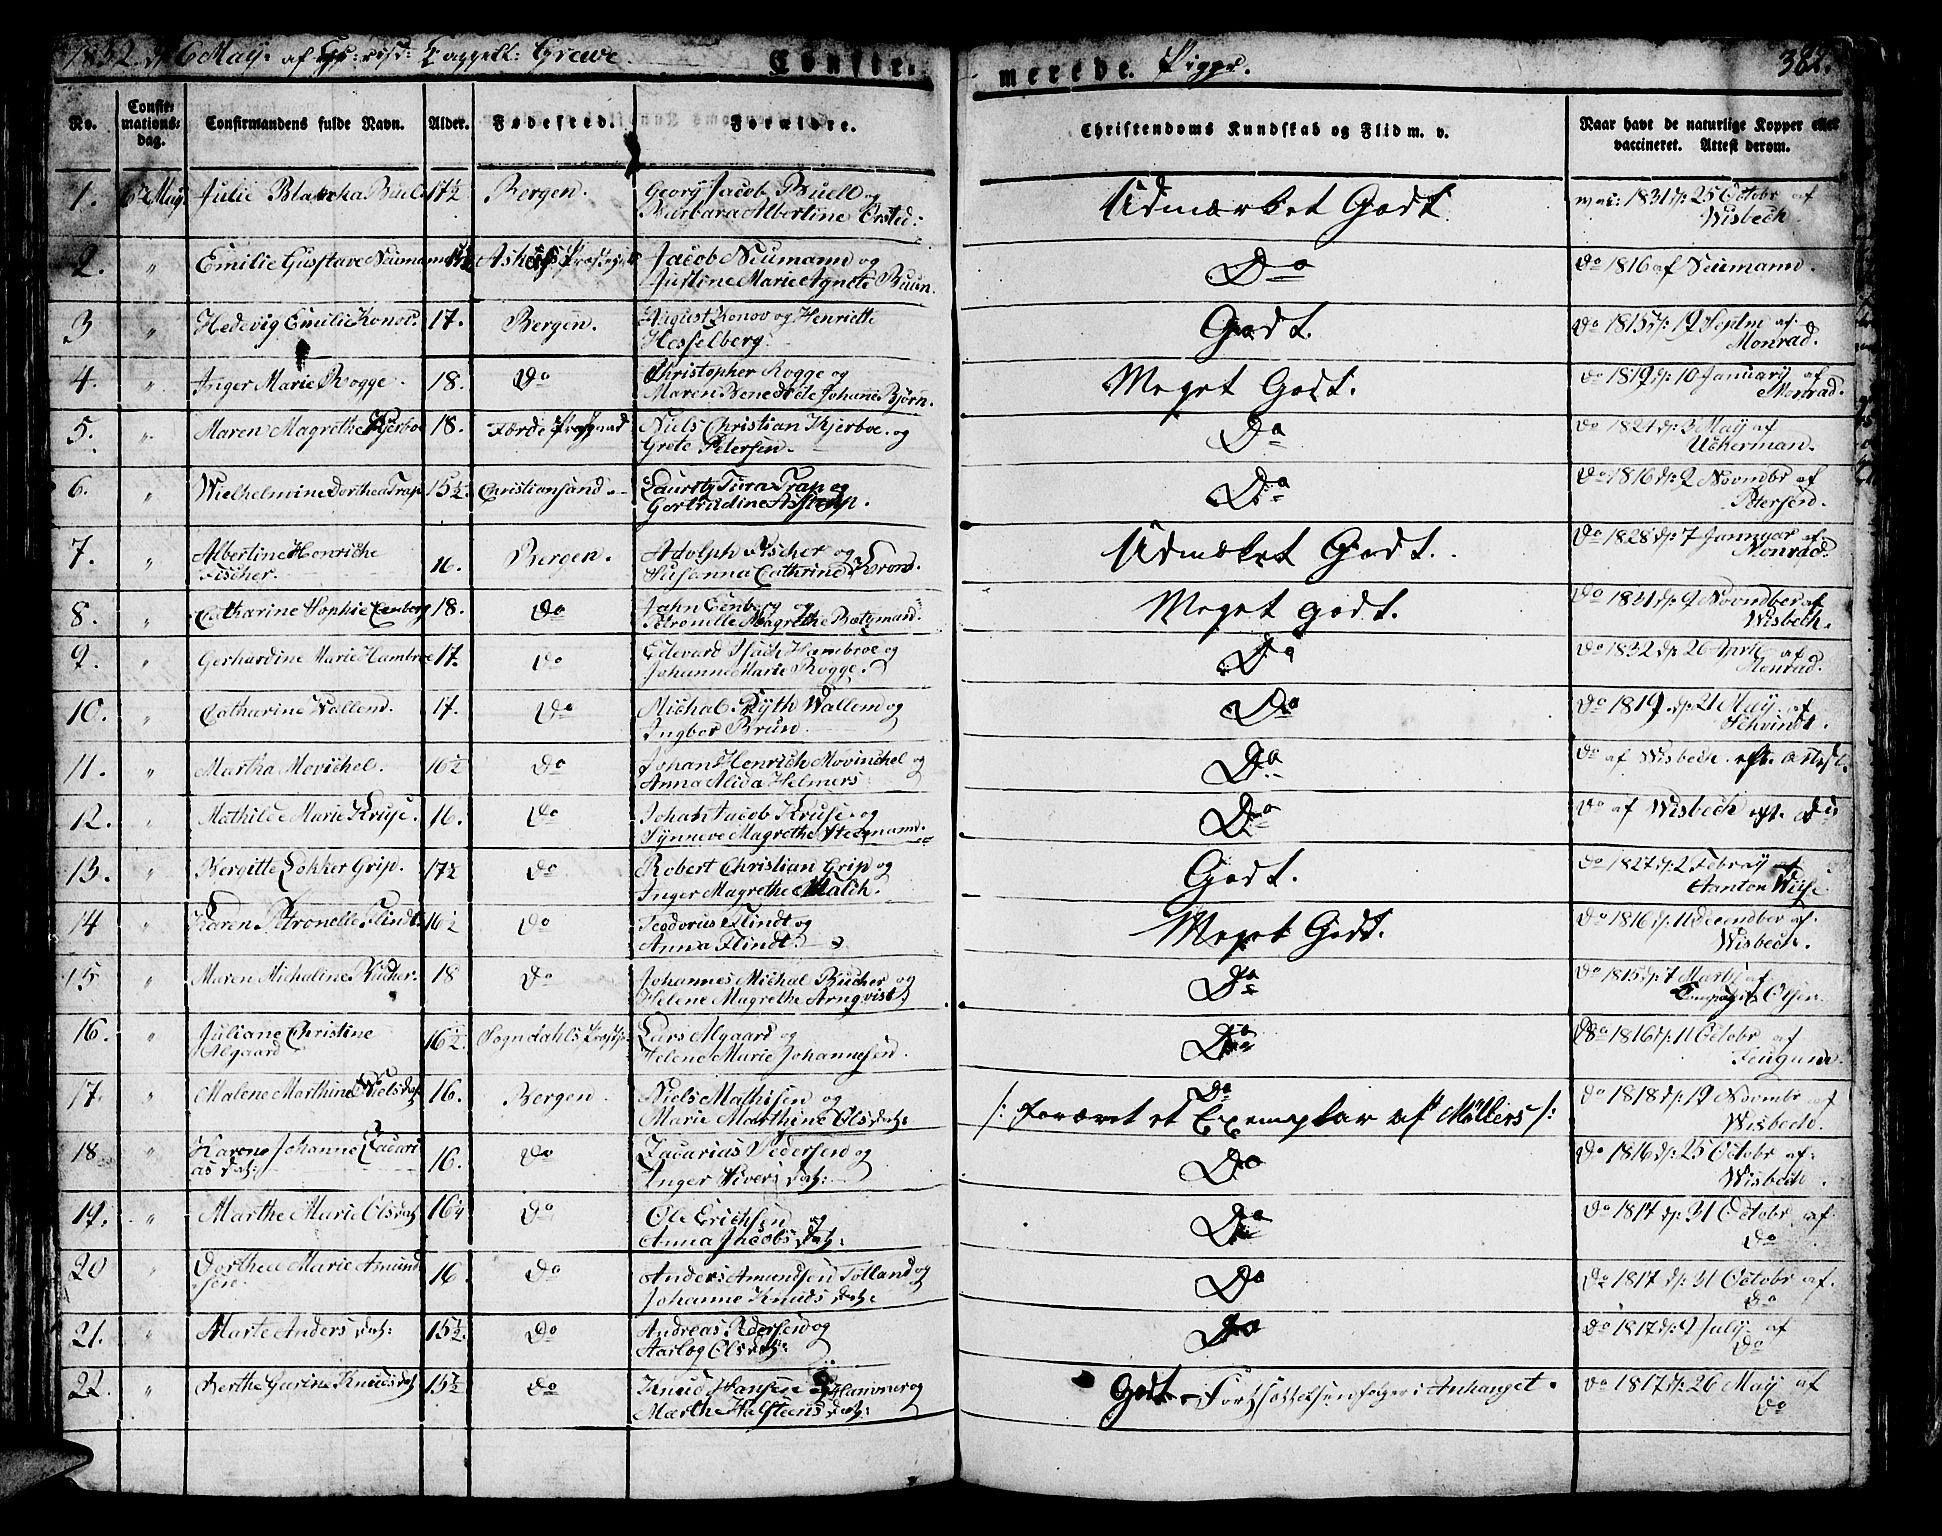 1832. d: 6 May. af Hr: resd: Cappell: Grewe.
Confir-
merede. Piger.
382.
No.
Confir-
mations-
dag.
Confirmandens fulde Navn.
Alder.
Fødested.
Forældre.
Christendoms Kundskab og Flid m. v.
Naar havt de naturlige Kopper eller
vaccineret. Attest derom.
1. 6te May Julie Blanka Buell 17½ Bergen. Georg Jacob Buell og
Barbara Albertine Ørsted: Udmærket Godt vac: 1831 d: 25 Octobr af
Wisbech.
2. " Emilie Gustave Neumann Jacob Neumann og
Justine Marie Agnete Buun. Do Do 1816 af Neumann.
3 " Hedevig Emilie Konov. 17. Bergen. August Konov og Henriette
Hesselberg. Godt. Do 1815 d: 19 Septm af
Monrad.
4. " Inger Marie Rogge. 18. Do Christopher Rogge og
Maren Benedicte Johane Bjørn. Meget Godt. Do 1819 d: 10 January af
Monrad.
5. " Maren Magrethe Kjerboe 18. Førde Niels Christian Kjerboe. og
Grete Petersen. Do Do 1821 d: 3 May af
Uckerman.
6. " Wielhelmine Dorthea Trap 15½. Christiansand Lauritz Tura Trap og
Gertrudine Do Do 1816 d: 9 Novmbr af
Petersen.
7. " Albertine Henriche
Fischer. 16. Bergen. Adolph Fischer og
Susanna Cathrine Krond. Udmæket Godt. Do 1828 d: 7 Januar af
Monrad.
8. " Catharine Sophie Eenberg 18. Do Jahn Eenberg og
Petronelle Magrethe Meget godt. Do 1831 d: 9 Novmber af
Wisbech.
9. " Gerhardine Marie Hambroe 17. Do Edevard Isach Hambroe og
Johanne Marie Rogge. Do Do 1832 d: 26 April af
Monrad.
10. " Catharine Wallend. 17. Do Michal Wallem og
Ingbor Brun. Do Do 1819 d: 21 May af
Schvindt.
11. " Martha Movichel. 16½ Do Johan Henrich Movinchel og
Anna Alida Helmers. Do Do af Wisbech. eft. attest.
12. " Mathilde Marie Kruse. 16. Do Johan Jacob Kruse og
Synneve Magrethe Stegmann. Do Do af Wisbech eft. do
13. " Bergitte Lokker Grip. 17½ Do Robert Christian Grip og
Inger Magrethe Walch. Godt. Do 1827 d: 2 Febray af
Anton Wiise
14 " Karen Petronelle Flindt. 16½ Do Teodorus Flindt og
Anna Flindt. Meget Godt. Do 1816 d: 11 decembber af
Wisbech.
15 " Maren Michaline Bucher. 18 Do Johannes Michal Bucher og
Helene Magrethe Arnqvist. Do Do 1815 d: 7 Martij af
Olsen.
16. " Juliane Christine
Algaard 16½. Sogndahls Lars Algaard og
Helene Marie Johannesen. Do Do 1816 d: 11 Octobr af
17. " Malene Marthine Nielsdat 16. Bergen Niels Mathisen og
Marie Marthine Olsdat: Do
/: foræret et Exemplar af Møllers /: Do 1818 d: 19 Novmbr af
Wisbech.
18 " Karen Johanne Zacari
as dat: 16. Do Zacarias Pedersen og
Inger Sivers dat: Do Do 1816 d: 25 Octobr af
Wisbech.
19. " Marthe Marie Olsdat 16¼ Do Ole Erichsen og
Anna Jacobs dat: Do Do 1817 d: 31 Octobr af
Do
20 " Dorthea Marie Amund
sen 16. Do Anders Amundsen Tolland og
Johanne Knuds dat: Do Do 1817 d: 31 Octobr af
Do
21. " Marte Anders dat: 15½. Do Andreas Pedersen og
Aarlog Olsdat: Do Do 1817 d: 9 July af
Do
22. " Berthe Gurine Knudsdat 15½ Do Knud Hansen Hammer og
Marthe Halsteensdat: Godt. Fortsættelsen følger i Anhanget. Do 1817 d: 26 May af
Do